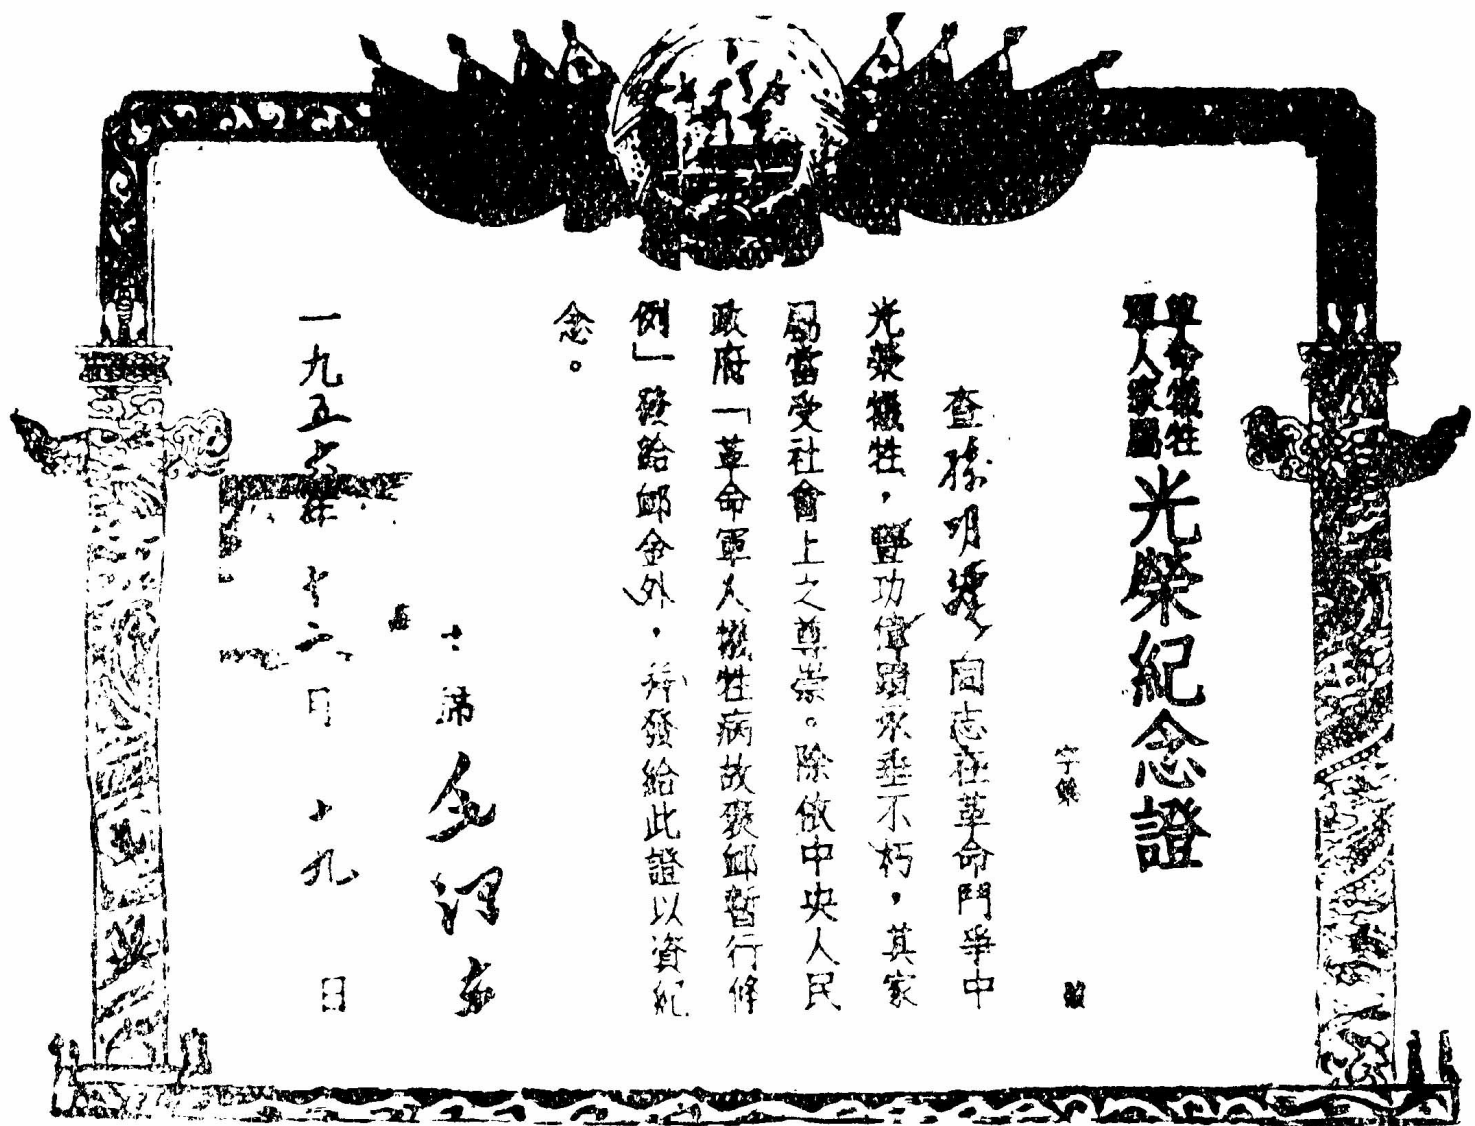 革命犧牲
軍人家屬
光榮紀念證
字第 號
查孫明 同志在革命鬥爭中
光榮犧牲，豐功偉蹟永垂不朽，其家
屬當受社會上之尊崇。除依中央人民
政府「革命軍人犧牲病故褒卹暫行條
例」發給卹金外，并發給此證以資紀
念。
主席毛澤東
一九五六年十二月十九日